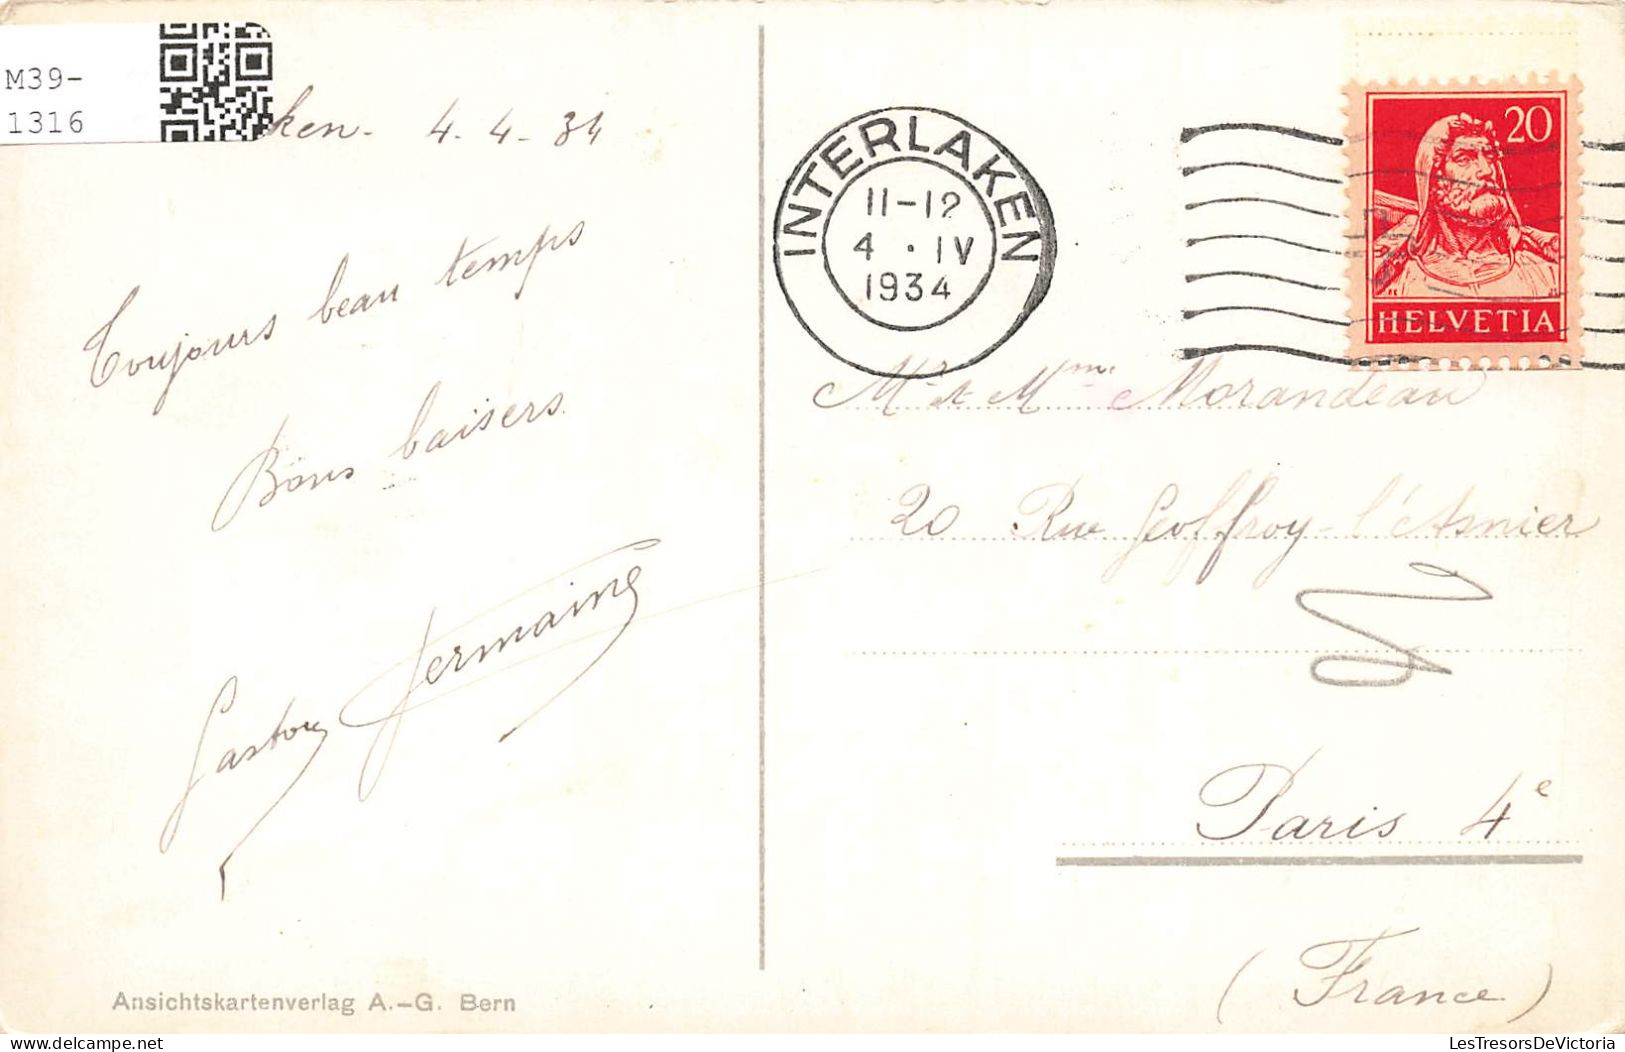 M39-
1316
ken - 4. 4 - 34
Toujours beau temps
Bons baisers
Gaston Germaine
Ansichtskartenverlag A.-G. Bern
INTERLAKEN
11-12
4 · IV
1934
20
HELVETIA
Mr et Mme Morandeau
20 Rue Geoffroy-l'Asnier
Paris 4e
(France)
LesTresorsDeVictoria